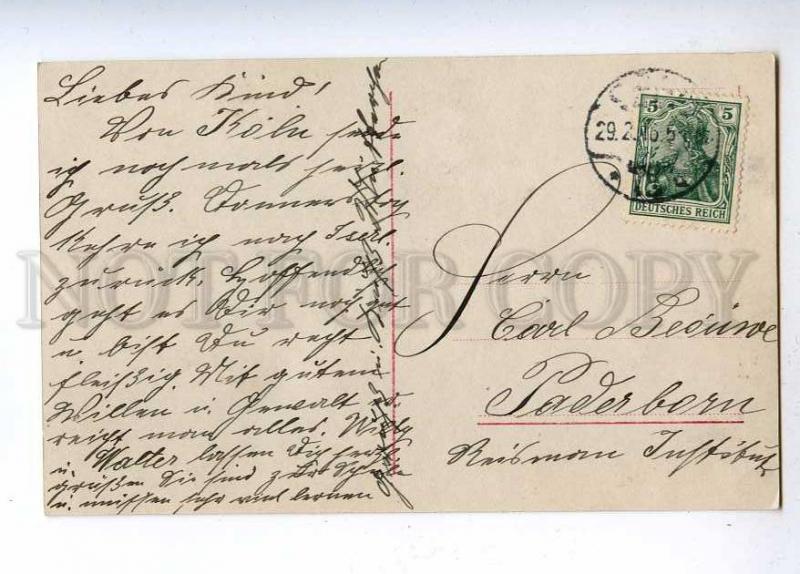 Liebes Kind!
Von Köln sende
ich nochmals herzl.
Gruß. Donnerstag
kehre ich nach Iserl.
zurück. Hoffendlich
geht es Dir noch gut
u. bist Du recht
fleißig. Mit gutem
Willen u. Gewalt er-
reicht man alles. Willy
u. Walter lassen Dich herzl.
grüßen Sie sind zur Schule
u. müssen sehr viel lernen
29.2.
5 5
DEUTSCHES REICH
Herrn
Carl
Paderborn
Reisman Institut
NOT FOR COPY